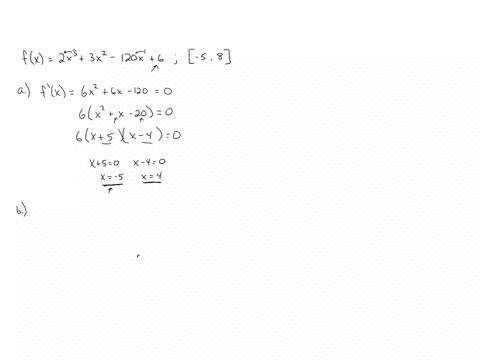 f(x) = 2x³ + 3x² - 120x + 6 ; [-5, 8]
a.) f'(x) = 6x² + 6x - 120 = 0
6(x² + x - 20) = 0
6(x + 5)(x - 4) = 0
x+5=0 x-4=0
x=-5 x=4
b.)